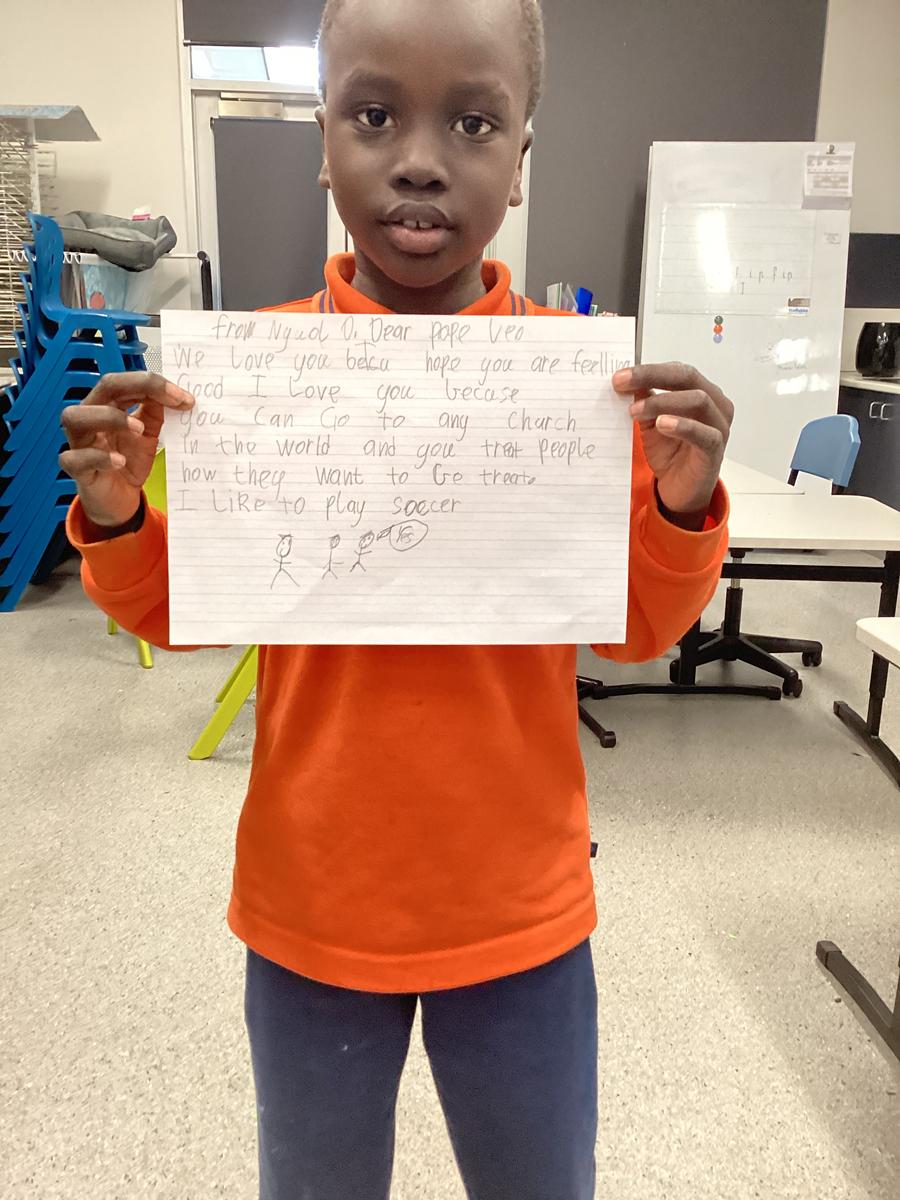 from Nyuol D. Dear pope Leo
We Love you hope you are feelling
Good I Love you becuse
you can Go to any church
in the world and you treat people
how they want to Be treat.
I Like to play soccer
Yes